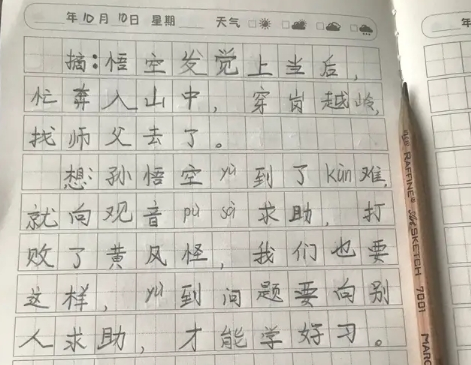 年10月10日 星期 天气
年
摘:悟空发觉上当后,
忙奔入山中,穿岗越岭,
找师父去了。
想:孙悟空yù到了kùn难,
就向观音pú sà求助,打
败了黄风怪,我们也要
这样,yù到问题要向别
人求助,才能学好习。
RAFFINE SKETCH 7001 MARC